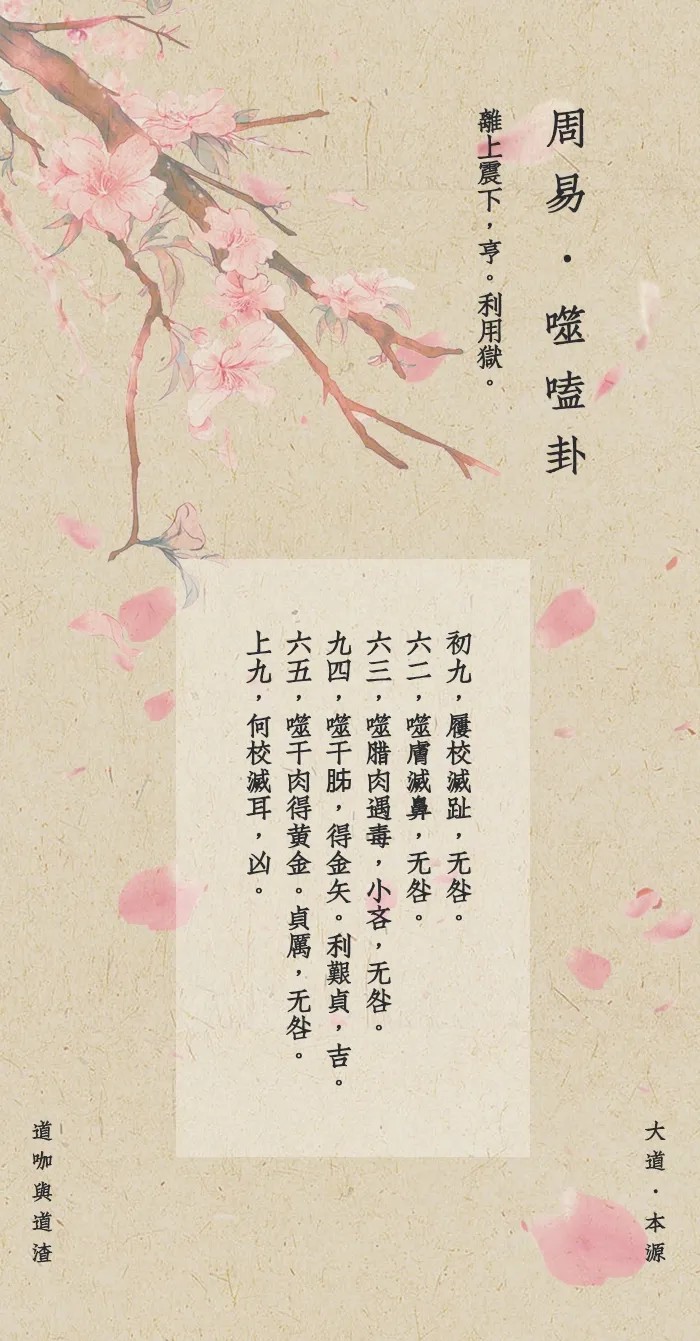 周易·噬嗑卦
離上震下，亨。利用獄。
初九，屨校滅趾，无咎。
六二，噬膚滅鼻，无咎。
六三，噬腊肉遇毒，小吝，无咎。
九四，噬干胏，得金矢。利艱貞，吉。
六五，噬干肉得黄金。貞厲，无咎。
上九，何校滅耳，凶。
大道·本源
道咖與道渣